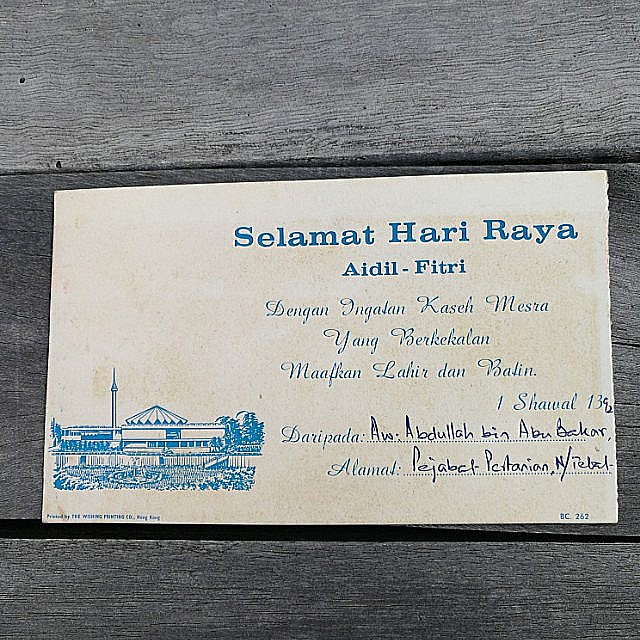 Selamat Hari Raya
Aidil - Fitri
Dengan Ingatan Kaseh Mesra
Yang Berkekalan
Maafkan Lahir dan Batin.
1 Shawal 139
Daripada: Aw. Abdullah bin Abu Bakar,
Alamat: Pejabat Pertanian, N/Tebal
Printed by THE WISHING PRINTING CO., Hong Kong
BC. 262